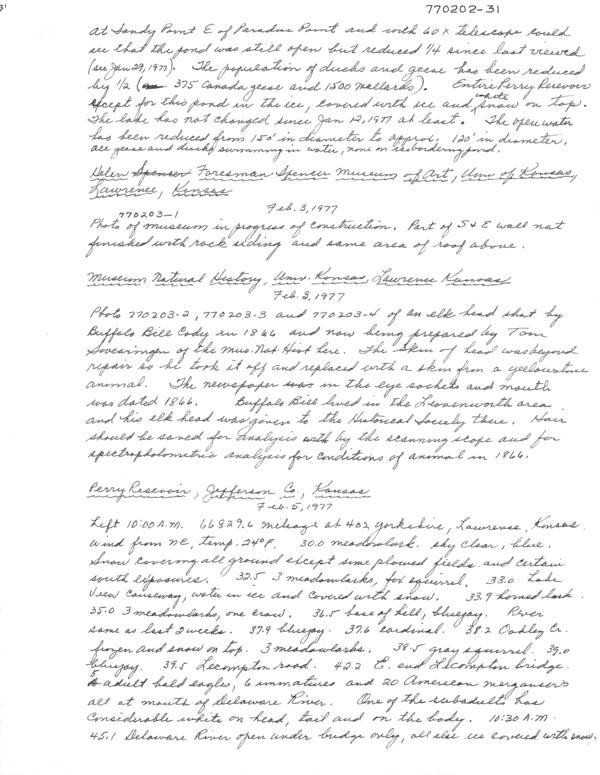 770202-31
At Sandy Point E of Paradise Point and with 60x telescope could
see that the pond was still open but reduced 1/4 since last viewed
(see Jan 29, 1977). The population of ducks and geese has been reduced
by 1/2 ( 375 Canada geese and 1500 mallards). Entire Perry Resevoir
except for this pond in the ice, covered with ice and white snow on top.
The lake has not changed since Jan 12, 1977 at least. The open water
has been reduced from 150' in diameter to approx. 120' in diameter,
all geese and ducks swimming in water, none on ice bordering pond.
Helen Spencer Foresman Spencer Museum of Art, Univ of Kansas,
Lawrence, Kansas
Feb. 3, 1977
770203-1
Photo of museum in progress of construction. Part of S & E wall not
finished with rock siding and some area of roof above.
Museum Natural History, Univ. Kansas, Lawrence Kansas
Feb. 3, 1977
Photo 770203-2, 770203-3 and 770203-4 of an elk head shot by
Buffalo Bill Cody in 1866 and now being prepared by Tom
Swearingen of the Mus. Nat. Hist here. The skin of head was beyond
repair so he took it off and replaced with a skin from a yellowstone
animal. The newspaper was in the eye sockets and mouth
was dated 1866. Buffalo Bill lived in the Leavenworth area
and his elk head was given to the Historical Society there. Hair
should be saved for analysis with by the scanning scope and for
spectropholometric analysis for conditions of animal in 1866.
Perry Resevoir, Jefferson Co., Kansas
Feb. 5, 1977
Left 10:00 A.M. 66829.6 mileage at 402 yorkshire, Lawrence, Kansas.
Wind from NE, temp. 24°F. 30.0 meadowlark. sky clear, blue.
Snow covering all ground except some plowed fields and certain
south exposures. 32.5 3 meadowlarks, fox squirrel. 33.0 Lake
View causeway, water in ice and covered with snow. 33.9 horned lark.
35.0 3 meadowlarks, one crow. 36.5 base of hill, bluejay. River
same as last 2 weeks. 37.9 bluejay. 37.6 cardinal. 38.2 Oakley Cr.
frozen and snow on top. 3 meadowlarks. 38.5 gray squirrel. 39.0
bluejay. 39.5 Lecompton road. 42.2 E. end Lecompton bridge.
5 adult bald eagles, 6 immatures and 20 American mergansers
all at mouth of Delaware River. One of the subadults has
considerable white on head, tail and on the body. 10:30 A.M.
45.1 Delaware River open under bridge only, all else ice covered with snow.